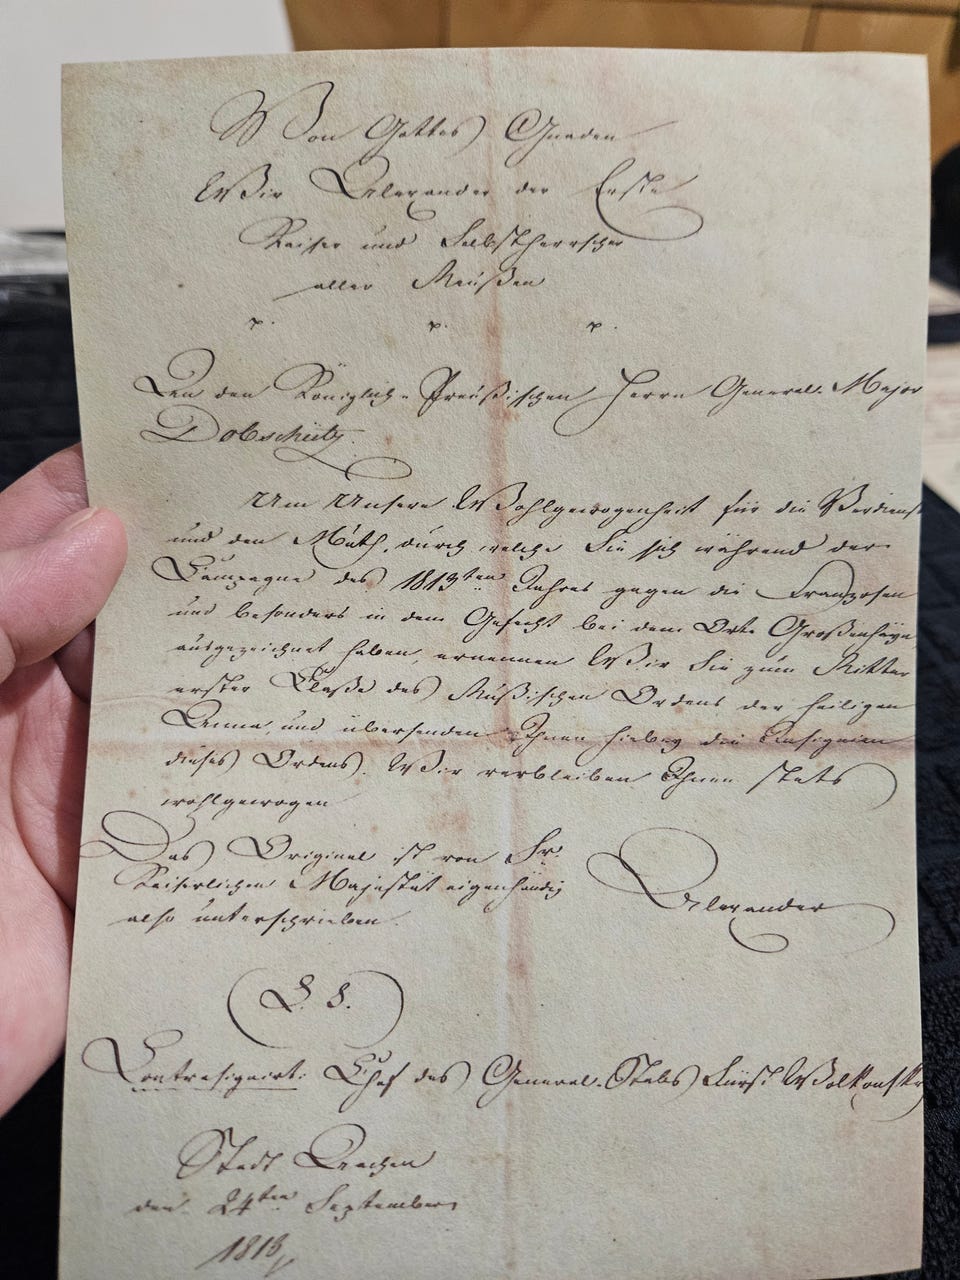 Von Gottes Gnaden
Wir Alexander der Erste
Kaiser und Selbstherrscher
aller Reußen
p. p. p.
An den Königlich-Preußischen Herrn General-Major
Dobschütz.
Um Unsere Wohlgewogenheit für die Verdienst
und den Muth, durch welche Sie sich während der
Campagne des 1813ten Jahres gegen die Franzosen
und besonders in dem Gefecht bei dem Orte Großenhayn
ausgezeichnet haben, ernennen Wir Sie zum Ritter
erster Claße des Rußischen Ordens der heiligen
Anna, und übersenden Ihnen hiebey die Insignien
dieses Ordens. Wir verbleiben Ihnen stets
wohlgewogen
Das Original ist von Sr.
Kaiserlichen Majestät eigenhändig
also unterschrieben.
Alexander
(L. S.)
Contrasignirt: Chef des General-Stabs Fürst Wolkonsky
Stadt Aachen
den 24ten September
1818